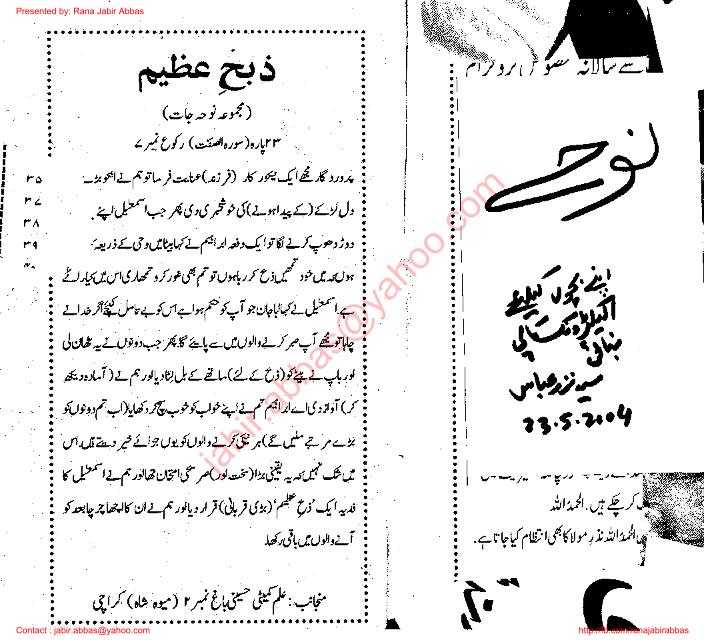 Presented by: Rana Jabir Abbas
ذبحِ عظیم
(مجموعہ نوحہ جات)
۲۳ پارہ (سورہ الصّٰفٰت) رکوع نمبر ۷
پروردگار مجھے ایک نیکو کار (فرزند) عنایت فرما تو ہم نے انکو بڑے
دل لڑکے (کے پیدا ہونے) کی خوشخبری دی پھر جب اسمعٰیل اپنے
دوڑ دھوپ کرنے لگا تو ایک دفعہ ابراہیم نے کہا بیٹا میں وحی کے ذریعہ
ہوں کہ میں خود تمھیں ذبح کر رہا ہوں تو تم بھی غور کرو تمھاری اس میں کیا رائے
ہے اسمعٰیل نے کہا بابا جان جو آپ کو حکم ہوا ہے اس کو بے تامل کیجئے اگر خدا نے
چاہا تو مجھے آپ صبر کرنے والوں میں سے پائیے گا پھر جب دونوں نے یہ ٹھان لی
اور باپ نے بیٹے کو (ذبح کے لئے) ماتھے کے بل لٹا دیا اور ہم نے (آمادہ دیکھ
کر) آواز دی اے ابراہیم تم نے اپنے خواب کو خوب سچ کر دکھایا (اب تم دونوں کو
بڑے مرتبے ملیں گے) ہم نیکی کرنے والوں کو یوں جزائے خیر دیتے ہیں اس
میں شک نہیں کہ یہ یقینی بڑا (سخت اور) صریحی امتحان تھا اور ہم نے اسمعٰیل کا
فدیہ ایک 'ذبح عظیم' (بڑی قربانی) قرار دیا اور ہم نے ان کا اچھا چرچا بعد کو
آنے والوں میں باقی رکھا۔
منجانب: علم کمیٹی حسینی باغ نمبر ۲ (میوہ شاہ) کراچی
۳۵
۳۷
۳۸
۳۹
سے سالانہ
پروگرام
نوحے
اپنے بچوں کیلئے
بنائی
سید نذر عباس
23.5.2004
کر چکے ہیں۔ الحمدُ اللہ
الحمدُ اللہ نذرِ مولا کا بھی انتظام کیا جاتا ہے۔
jabir.abbas@yahoo.com
Contact : jabir.abbas@yahoo.com